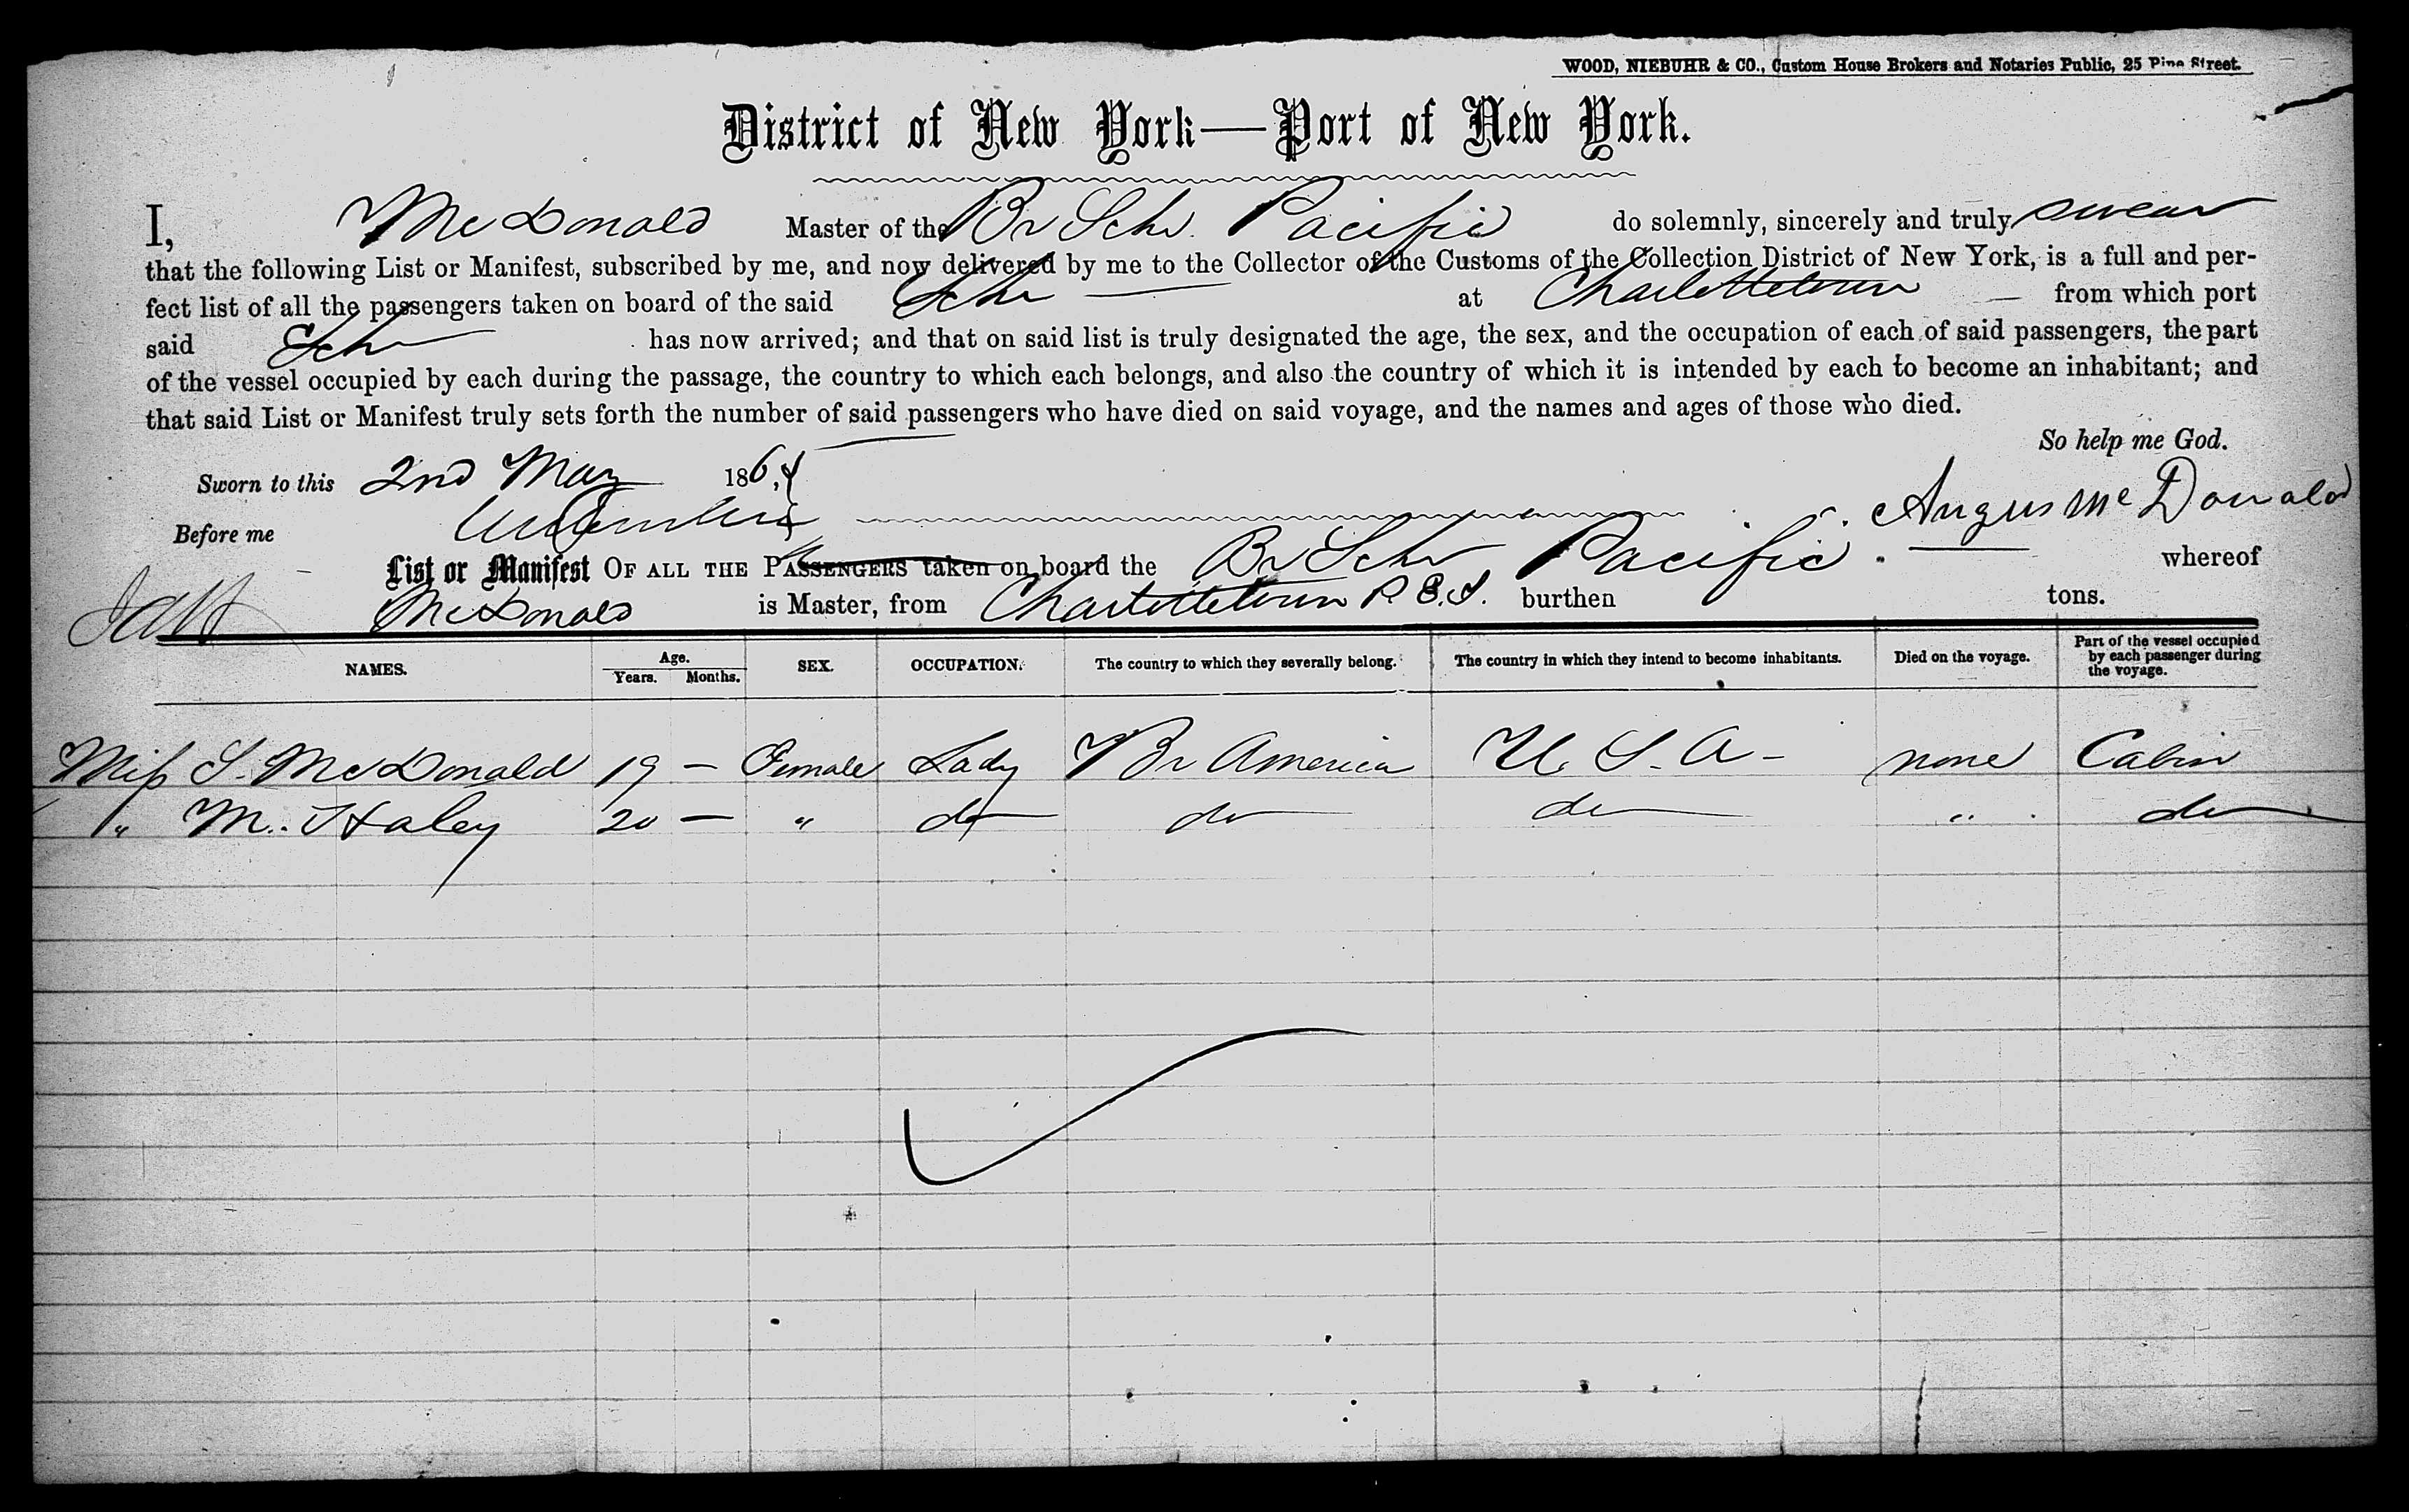 WOOD, NIEBUHR & CO., Custom House Brokers and Notaries Public, 25 Pine Street.
District of New York—Port of New York.
I, McDonald Master of the Br Schr. Pacific do solemnly, sincerely and truly swear
that the following List or Manifest, subscribed by me, and now delivered by me to the Collector of the Customs of the Collection District of New York, is a full and per-
fect list of all the passengers taken on board of the said Schr — at Charlottetown — from which port
said Schr has now arrived; and that on said list is truly designated the age, the sex, and the occupation of each of said passengers, the part
of the vessel occupied by each during the passage, the country to which each belongs, and also the country of which it is intended by each to become an inhabitant; and
that said List or Manifest truly sets forth the number of said passengers who have died on said voyage, and the names and ages of those who died.
So help me God.
Sworn to this 2nd May 186
Before me Angus McDonald
List or Manifest OF ALL THE PASSENGERS taken on board the Br Schr Pacific. whereof
McDonald is Master, from Charlottetown P.E.I. burthen tons.
NAMES. Age. Years. Months. SEX. OCCUPATION. The country to which they severally belong. The country in which they intend to become inhabitants. Died on the voyage. Part of the vessel occupied by each passenger during the voyage.
Miss S. McDonald 19 — Female Lady Br America U.S.A- none Cabin
" M. Haley 20 — " do do do " do